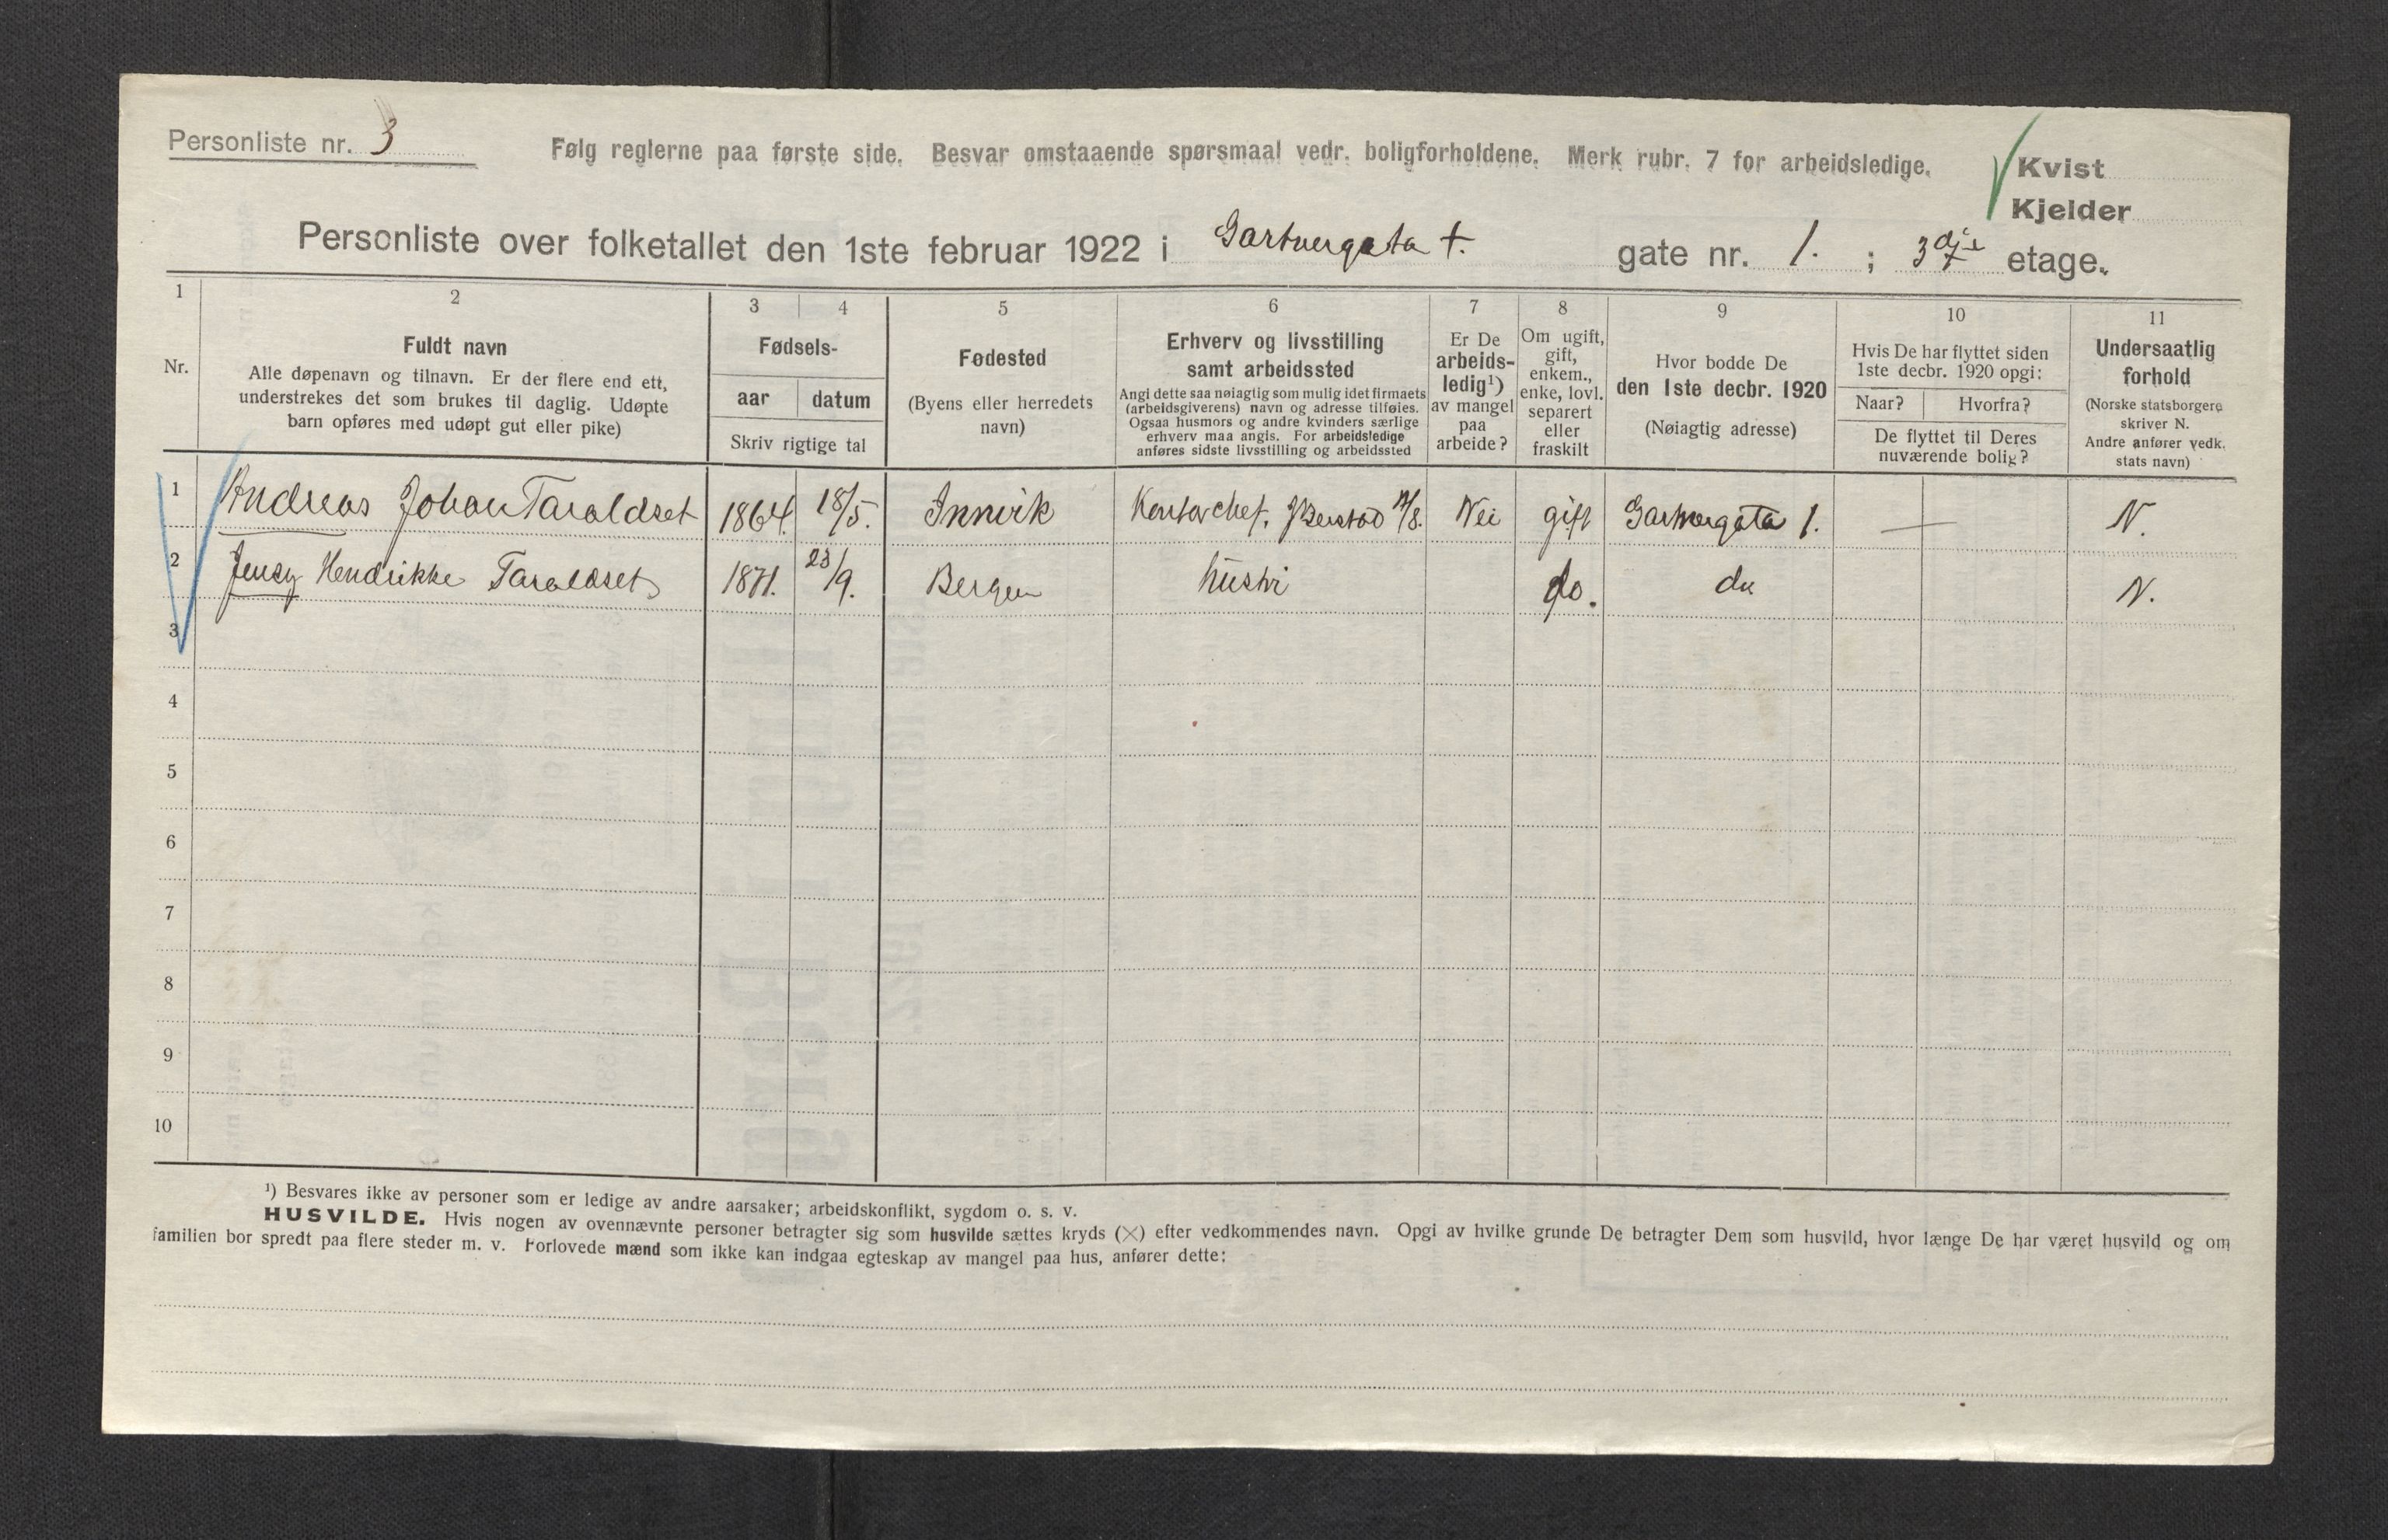 Personliste nr. 3
Følg reglerne paa første side. Besvar omstaaende spørsmaal vedr. boligforholdene. Merk rubr. 7 for arbeidsledige.
Kvist
Kjelder
Personliste over folketallet den 1ste februar 1922 i Gartnergata gate nr. 1. ; 3dje etage.
1 2 3 4 5 6 7 8 9 10 11
Nr.
Fuldt navn
Alle døpenavn og tilnavn. Er der flere end ett,
understrekes det som brukes til daglig. Udøpte
barn opføres med udøpt gut eller pike)
Fødsels-
aar datum
Skriv rigtige tal
Fødested
(Byens eller herredets
navn)
Erhverv og livsstilling
samt arbeidssted
Angi dette saa nøiagtig som mulig idet firmaets
(arbeidsgiverens) navn og adresse tilføies.
Ogsaa husmors og andre kvinders særlige
erhverv maa angis. For arbeidsledige
anføres sidste livsstilling og arbeidssted
Er De
arbeids-
ledig¹)
av mangel
paa
arbeide?
Om ugift,
gift,
enkem.,
enke, lovl.
separert
eller
fraskilt
Hvor bodde De
den 1ste decbr. 1920
(Nøiagtig adresse)
Hvis De har flyttet siden
1ste decbr. 1920 opgi:
Naar? Hvorfra?
De flyttet til Deres
nuværende bolig?
Undersaatlig
forhold
(Norske statsborgere
skriver N.
Andre anfører vedk.
stats navn)
1 Andreas Johan Taraldset 1864. 18/5. Innvik Kontorchef. Nei gift Gartnergata 1. — N.
2 Jency Hendrikke Taraldset 1871. 23/9. Bergen hustri do. do N.
3
4
5
6
7
8
9
10
¹) Besvares ikke av personer som er ledige av andre aarsaker; arbeidskonflikt, sygdom o. s. v.
HUSVILDE. Hvis nogen av ovennævnte personer betragter sig som husvilde sættes kryds (×) efter vedkommendes navn. Opgi av hvilke grunde De betragter Dem som husvild, hvor længe De har været husvild og om
familien bor spredt paa flere steder m. v. Forlovede mænd som ikke kan indgaa egteskap av mangel paa hus, anfører dette: